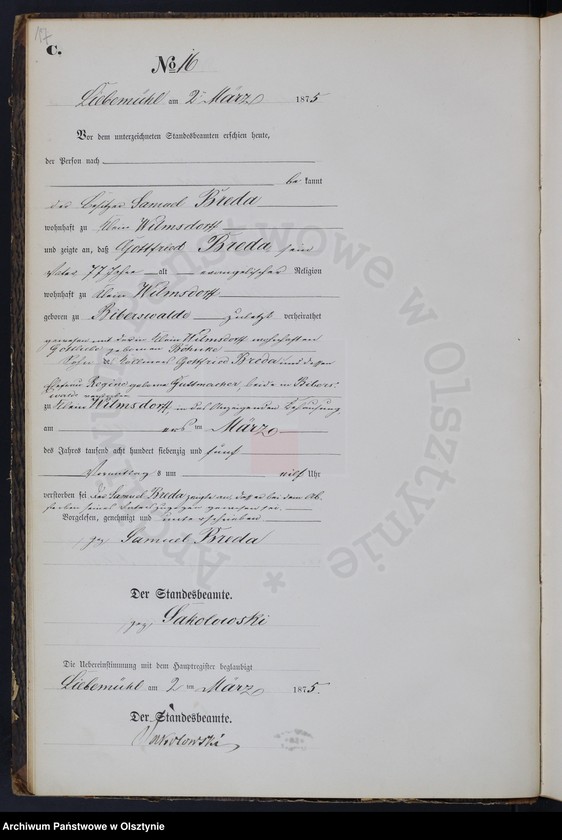 17
C.
No 16
Liebemühl am 2 ten März 1875
Vor dem unterzeichneten Standesbeamten erschien heute,
der Person nach
be kannt
der Besitzer Samuel Breda
wohnhaft zu Klein Wilmsdorff
und zeigte an, daß Gottfried Breda sein
Vater 77 Jahre alt evangelischer Religion
wohnhaft zu Klein Wilmsdorff
geboren zu Biberswalde zuletzt verheirathet
gewesen mit der in Klein Wilmsdorff wohnhaften
Gottliebe geborenen Böhnke
Sohn des Gottfried Breda und dessen
Ehefrau Regine geborne Guttmacher, beide in Bibers-
walde
zu Klein Wilmsdorff in des Anzeigenden Behausung
am ersten März
des Jahres tausend acht hundert siebenzig und fünf
Vormittags um eilf Uhr
verstorben sei. Der Samuel Breda zeigte an, daß er bei dem Ab-
sterben seines Vaters zugegen gewesen sei.
Vorgelesen, genehmigt und unterschrieben
gez. Samuel Breda
Der Standesbeamte.
gez. Sakolowski
Die Uebereinstimmung mit dem Hauptregister beglaubigt
Liebemühl am 2 ten März 1875.
Der Standesbeamte.
Sakolowski
Archiwum Państwowe w Olsztynie
Archiwum Państwowe w Olsztynie